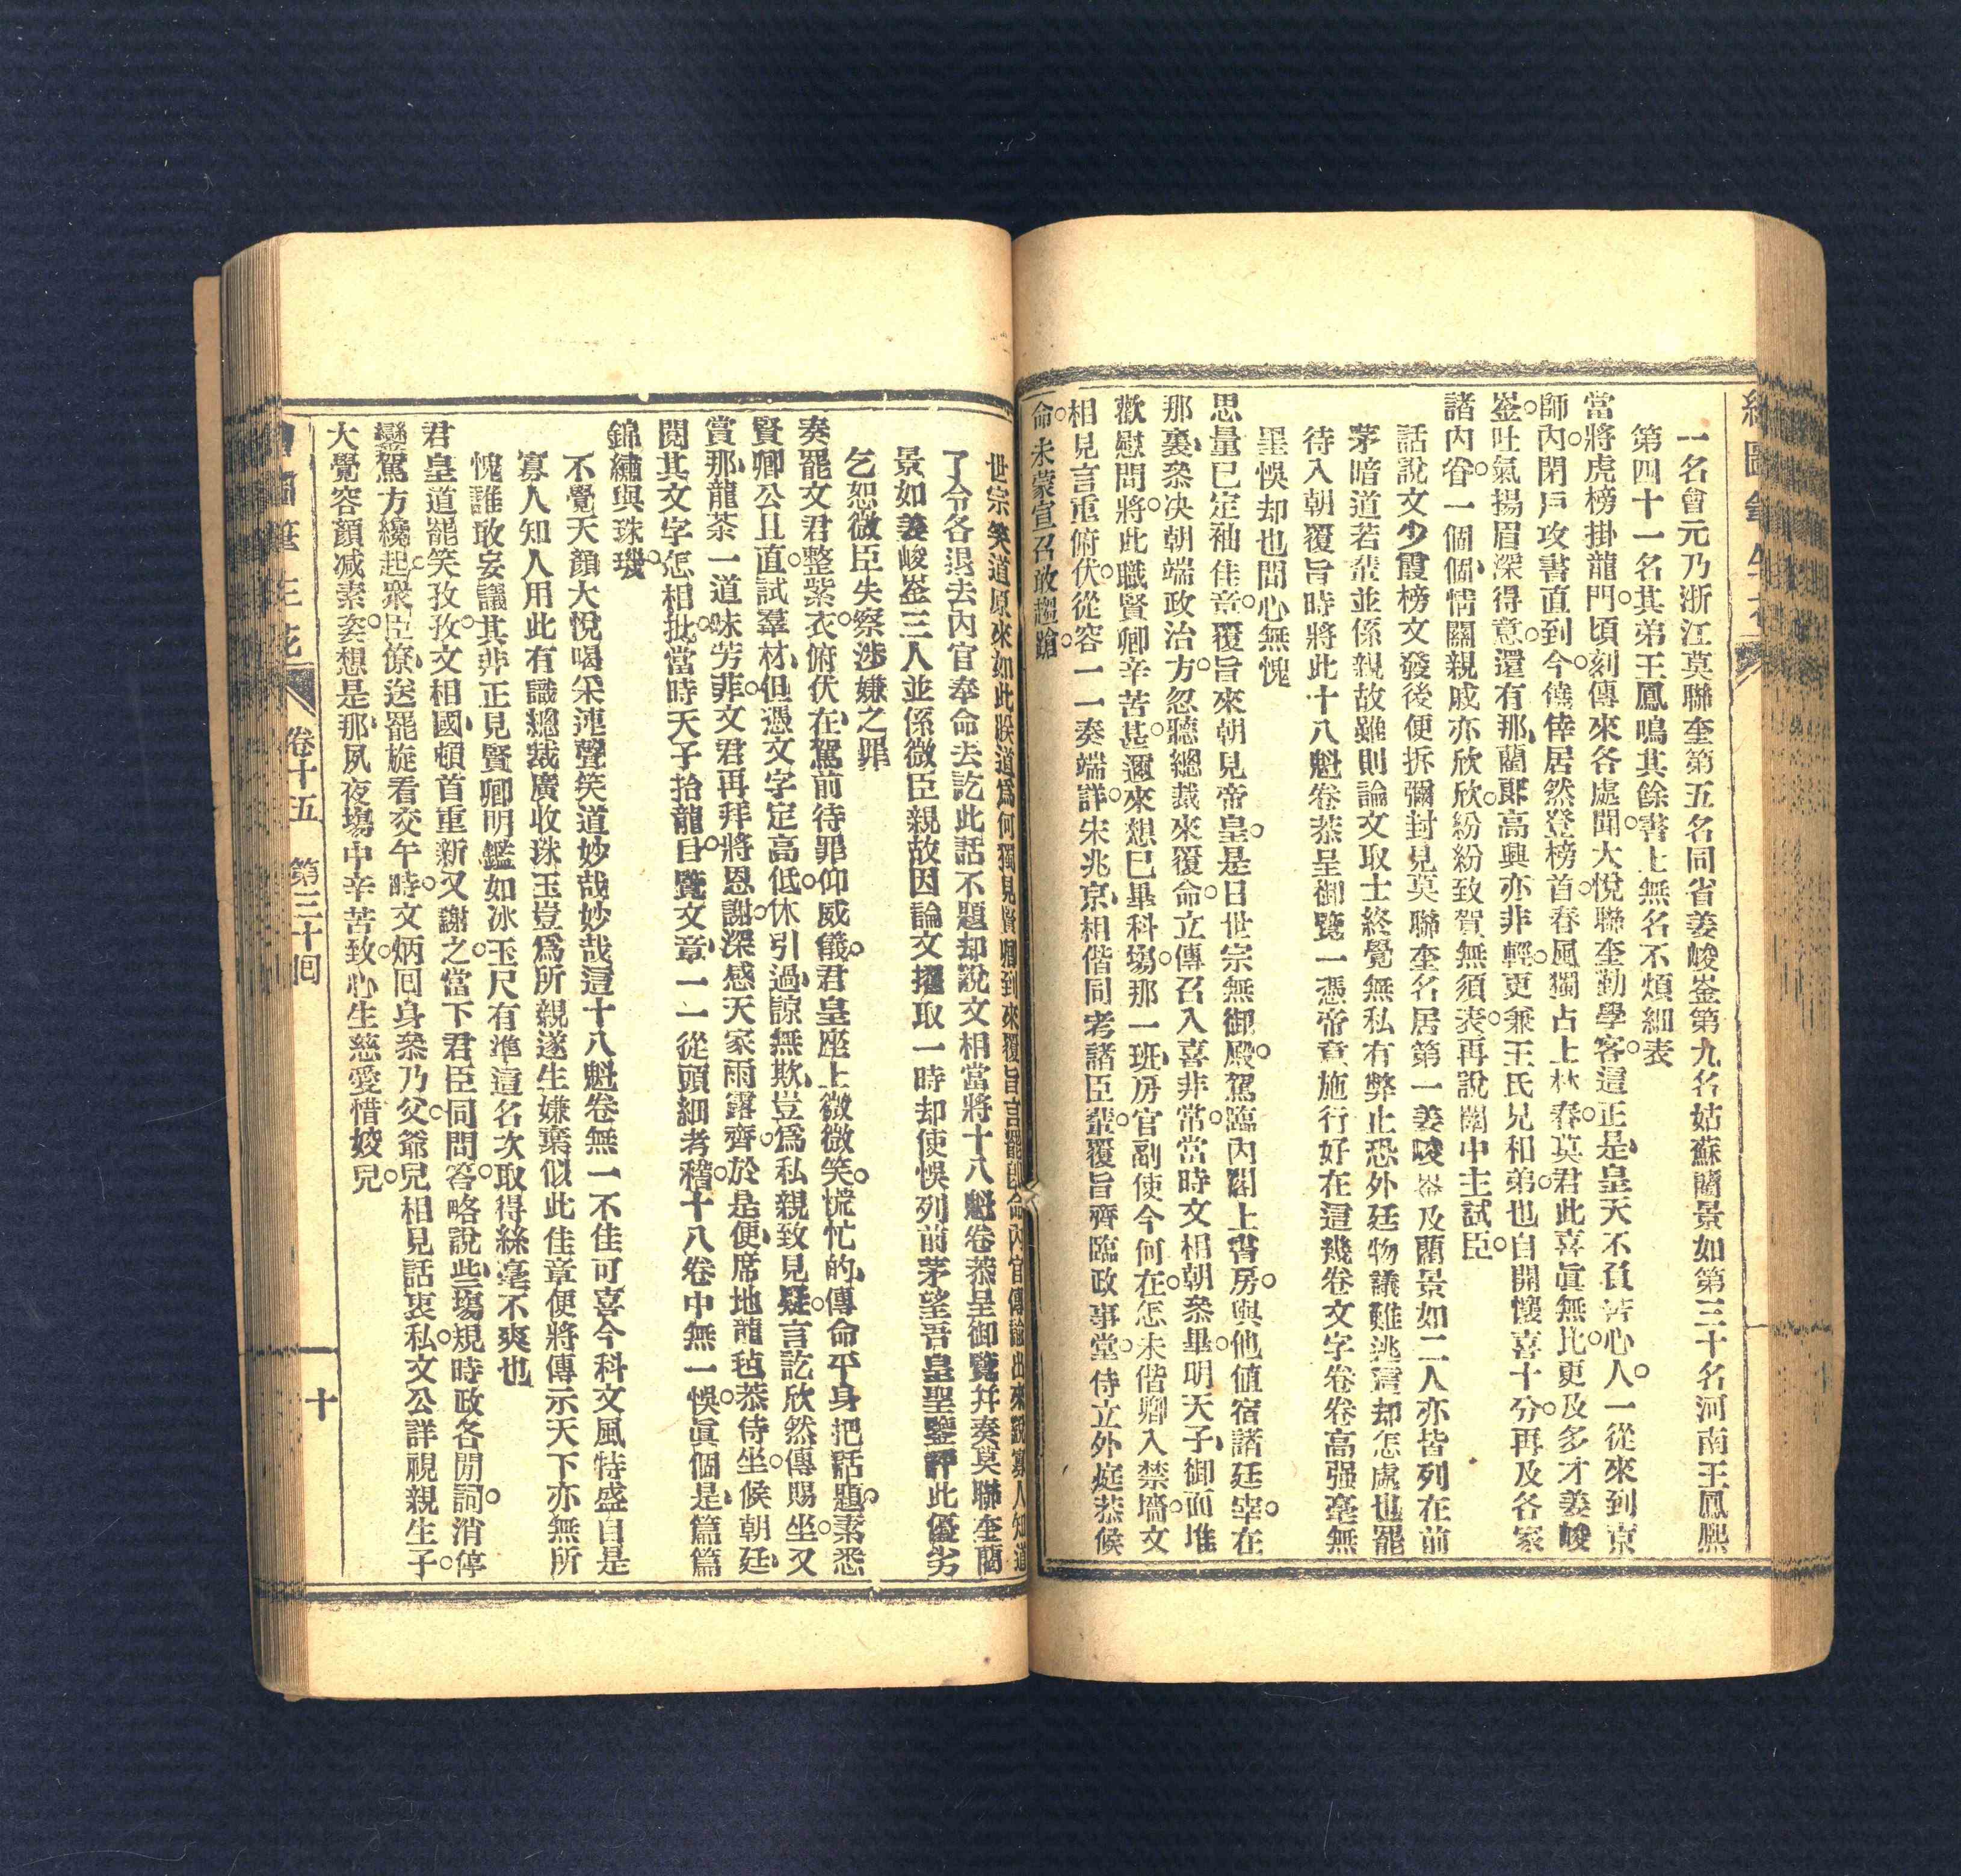 繪圖筆生花
一名會元乃浙江莫聯奎第五名同省姜峻峑第九名姑蘇藺景如第三十名河南王鳳熙
第四十一名其弟王鳳鳴其餘書上無名不煩細表
當將虎榜掛龍門。頃刻傳來各處聞。大悅聯奎勤學客。這正是、皇天不負苦心人。一從來到京
師內。閉戶攻書直到今。僥倖居然登榜首。春風獨占上林春。莫君此喜眞無比。更及多才姜峻
峑。吐氣揚眉深得意。還有那、藺郎高興亦非輕。更兼王氏兄和弟。也自開懷喜十分。再及各家
諸內眷。一個個、情關親戚亦欣欣。紛紛致賀無須表。再說闈中主試臣。
話說文少霞榜文發後便拆彌封見莫聯奎名居第一姜峻峑及藺景如二人亦皆列在前
茅暗道若輩並係親故雖則論文取士終覺無私有弊止恐外廷物議難逃這却怎處也罷
待入朝覆旨時將此十八魁卷恭呈御覽一憑帝意施行好在這幾卷文字卷卷高强毫無
墨悞却也問心無愧
思量已定袖佳章。覆旨來朝見帝皇。是日世宗無御殿。駕臨內閣上書房。與他値宿諸廷宰。在
那裏、叅决朝端政治方。忽聽總裁來覆命。立傳召入喜非常。當時文相朝叅畢。明天子、御面堆
歡慰問將。此職賢卿辛苦甚。邇來想已畢科塲。那一班、房官副使今何在。怎未偕卿入禁墻。文
相見言重俯伏。從容一一奏端詳。宋兆京、相偕同考諸臣輩。覆旨齊臨政事堂。侍立外庭恭候
命。未蒙宣召敢趨蹌。
世宗笑道原來如此朕道爲何獨見賢卿到來覆旨言罷卽命內官傳諭出來說寡人知道
了令各退去內官奉命去訖此話不題却說文相當將十八魁卷恭呈御覽幷奏莫聯奎藺
景如姜峻峑三人並係微臣親故因論文擢取一時却使悞列前茅望吾皇聖鑒評此優劣
乞恕微臣失察涉嫌之罪
奏罷文君整紫衣。俯伏在、駕前待罪仰威儀。君皇座上微微笑。慌忙的、傳命平身把話題。素悉
賢卿公且直。試羣材、但憑文字定高低。休引過、諒無欺、豈爲私親致見疑。言訖欣然傳賜坐。又
賞那、龍茶一道味芳菲。文君再拜將恩謝。深感天家雨露齊。於是便、席地龍毡恭侍坐。候朝廷、
閱其文字怎相批。當時天子抬龍目。覽文章、一一從頭細考稽。十八卷中無一悞。眞個是、篇篇
錦繡與珠璣。
不覺天顔大悅喝采連聲笑道妙哉妙哉這十八魁卷無一不佳可喜今科文風特盛自是
寡人知人用此有識總裁廣收珠玉豈爲所親遂生嫌棄似此佳章便將傳示天下亦無所
愧誰敢妄議其非正見賢卿明鑑如冰玉尺有準這名次取得絲毫不爽也
君皇道罷笑孜孜。文相國、頓首重新又謝之。當下君臣同問答。略說些、塲規時政各閒詞。消停
鑾駕方纔起。衆臣僚、送罷旋看交午時。文炳回身叅乃父。爺兒相見話衷私。文公詳視親生子。
大覺容顔減素姿。想是那、夙夜塲中辛苦致。心生慈愛惜姣兒。
卷十五　第三十回
十